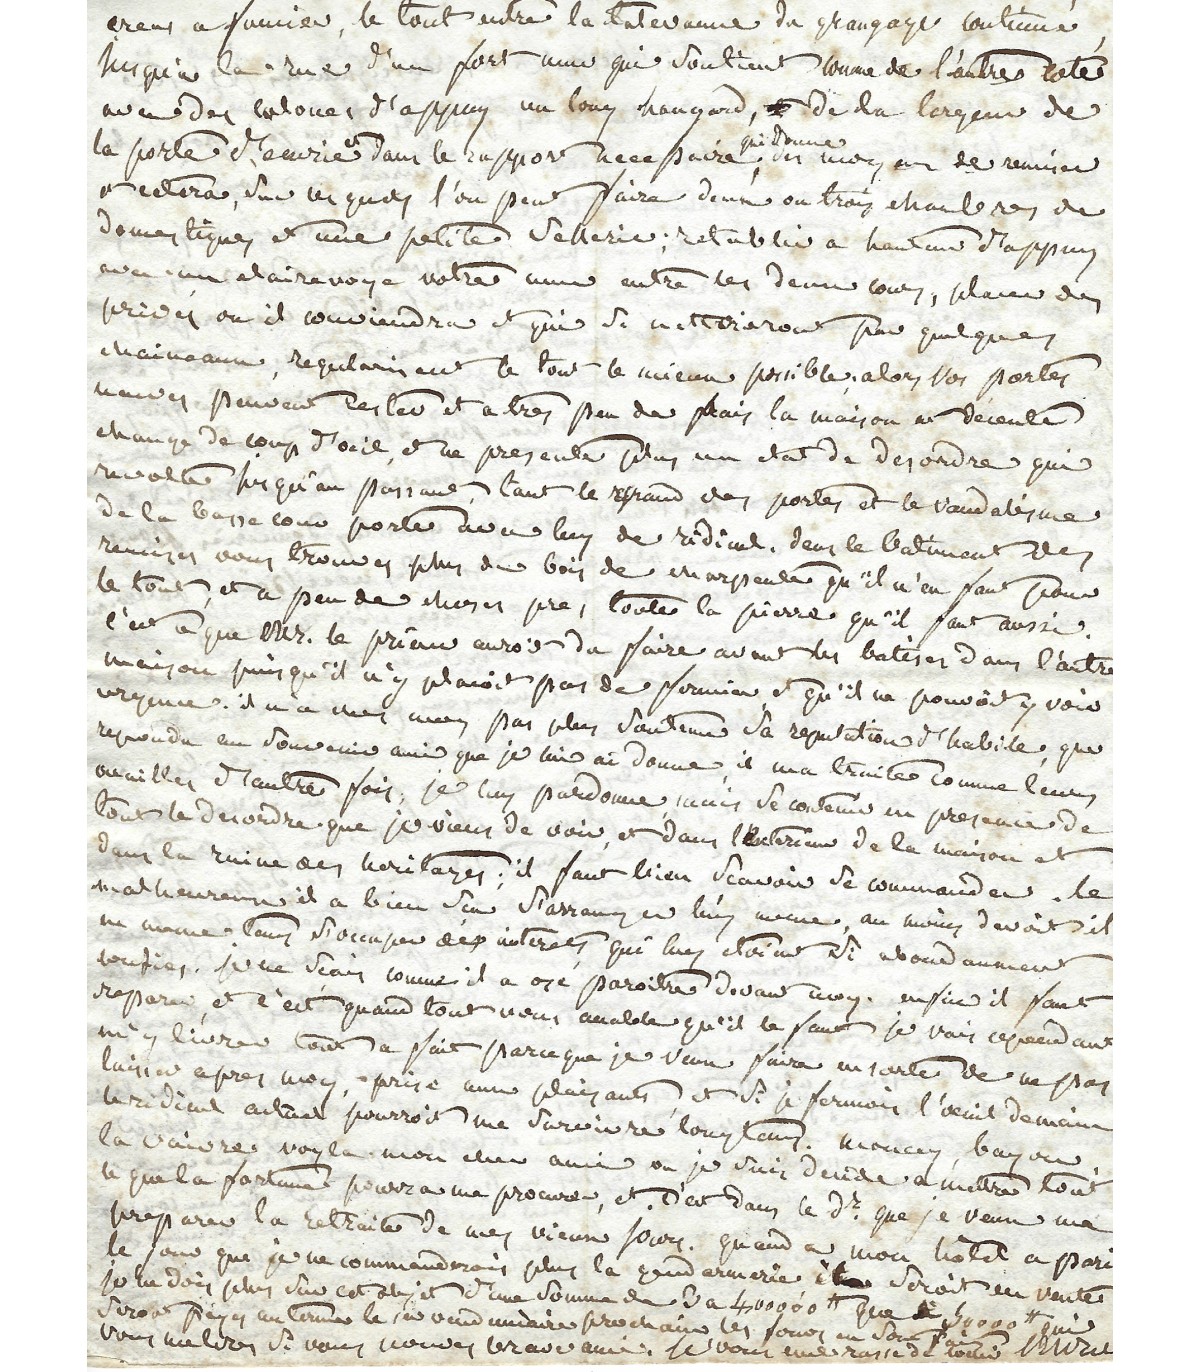 creus a fumier, le tout entre la contenance du grangage continué,
jusqu'a la rue d'un fort mur qui soutient comme de l'autre coté
avec des colones d'appuy un long hangard, de la largeur de
la porte d'ecurie et dans le rapport necessaire qui donne des moyens de remiser
et cetera, sur lesquels l'on peut faire deux ou trois chambres de
domestiques et une petite sellerie; retablir a hauteur d'appuy
avec un clairevoye votre mur entre les deux cours, placer des
privés ou il conviendra et qui se nettoieront par quelques
chaineaux, regulariser le tout le mieux possible, alors vos portes
neuves peuvent rester et a tres peu de frais la maison est decente
change de coup d'oeil, et ne presente plus un etat de desordre qui
revolte jusqu'au passant, tant le grand des portes et le vandalisme
de la basse cour porte avec luy de ridicul. dans le batiment des
remises vous trouves plus de bois de charpente qu'il n'en faut pour
le tout, et a peu de choses pres, toute la pierre qu'il faut aussi.
c'est ce que Mr. le prieur auroit du faire avant les batises dans l'autre
maison puisqu'il n'y placoit pas de fermier, et qu'il ne pouvoit y voir
urgence. il n'a chez moy pas plus soutenu sa reputation d'habile, que
repondu au souvenir ami que je lui ai donné, il m'a traité comme leurs
ouailles d'autre fois; je luy pardonne, mais se contenir en presence de
tout le desordre que je viens de voir, et dans l'interieur de la maison et
dans la ruine des heritages; il faut bien scavoir se commander. le
malheureux il a bien sçu s'arranger luy meme, au moins devoit il
en meme tems s'occuper des interets qui luy etoient si abondamment
confiés. je ne sçais comme il a osé paroitre devant moy. enfin il faut
reparer, et c'est quand tout vous accable qu'il le faut je vais cependant
m'y livrer tout a fait parceque je veux faire ensorte de ne pas
laisser apres moy, prise aux plaisants, et si je fermois l'oeuil demain
le ridicul actuel pourroit me survivre longtems. moncey, bayon
la vaivre voyla mon cher ami ou je suis decidé a mettre tout
ce que la fortune pourra me procurer, et c'est dans le dr. que je veux me
preparer la retraite de mes vieux jours. quand a mon hôtel a pari
le jour que je ne commanderais plus la gendarmerie il seroit en vente
je ne dois plus sur cet objet d'une somme de 3 a 400000 # que 50000 # qui
seront payés au terme le 1er vendemiaire prochain, les fours en sont
vous me lires si vous pouvez brave ami. je vous embrasse de tout